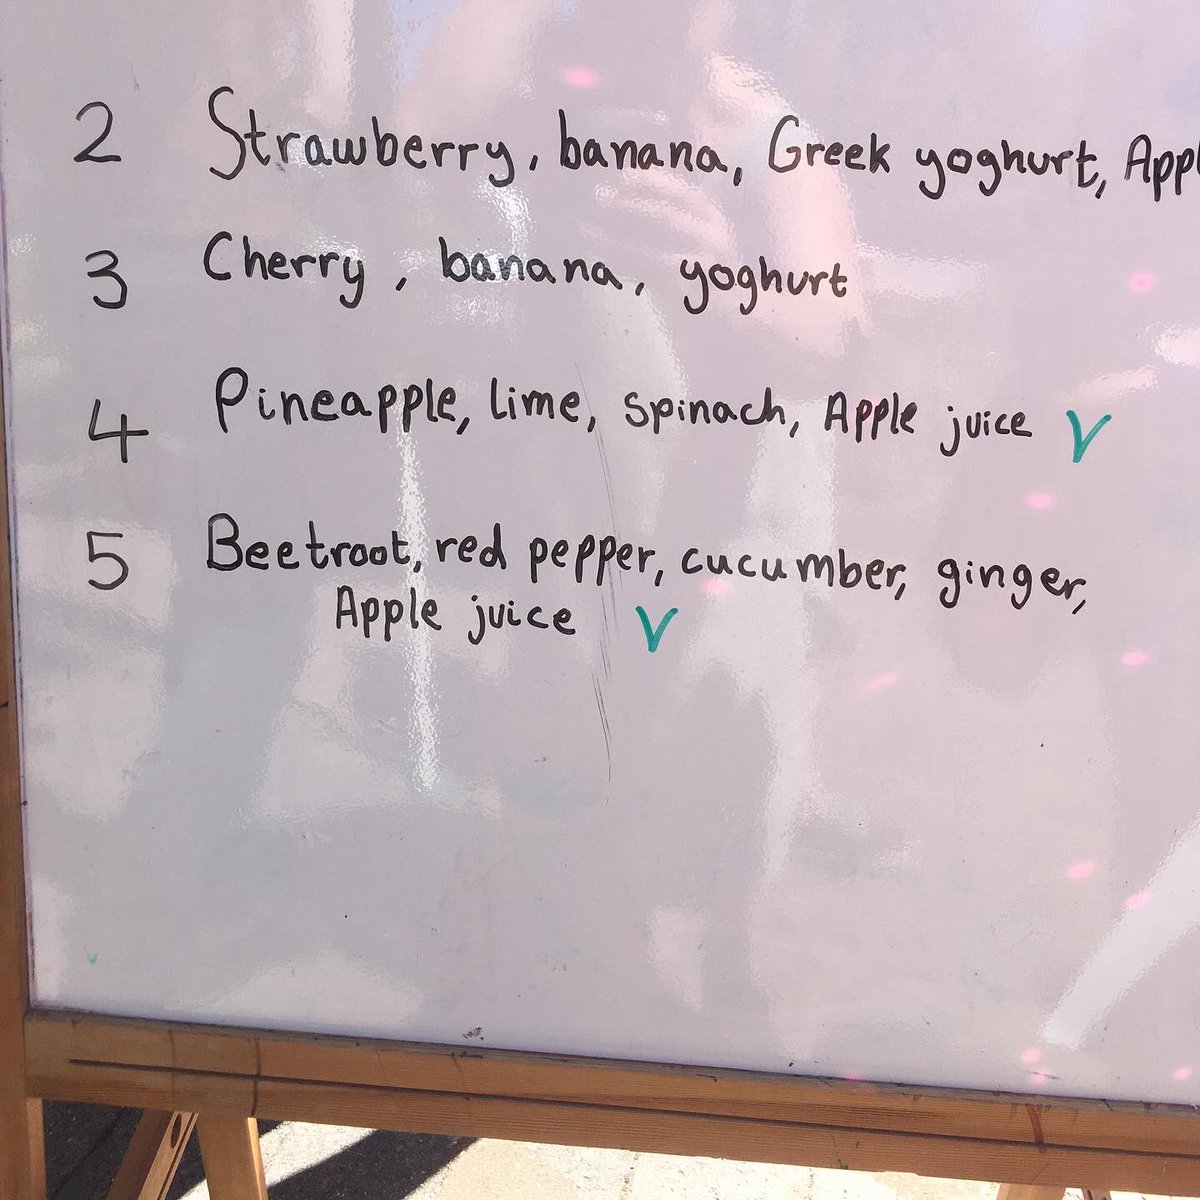 2 Strawberry, banana, Greek yoghurt,
3 Cherry, banana, yoghurt
4 Pineapple, lime, spinach, Apple juice V
5 Beetroot, red pepper, cucumber, ginger,
Apple juice V